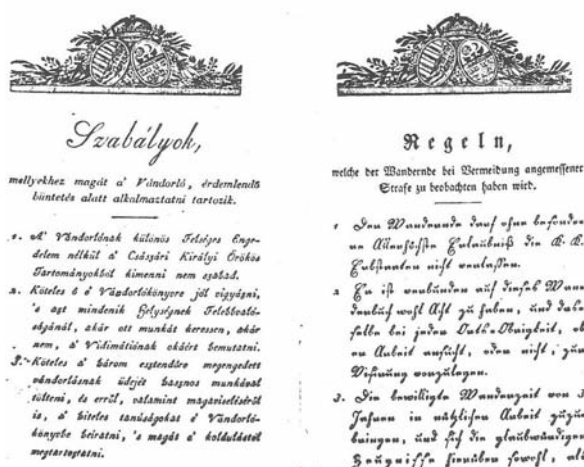 Szabályok,
mellyekhez magát a' Vándorló, érdemlendő
büntetés alatt alkalmaztatni tartozik.
1. A' Vándorlónak különös Felséges Enge-
delem nélkül a' Császári Királyi Örökös
Tartományokból kimenni nem szabad.
2. Köteles é a' Vándorlókönyvre jól vigyázni,
's azt mindenik Helységnek Felebbvaló-
ságánál, akár ott munkát keressen, akár
nem, a' Vidimátiónak okáért bemutatni.
3. Köteles a' három esztendőre megengedett
vándorlásnak üdejét hasznos munkával
tölteni, és erről, valamint magaviseletéről
is, a' hiteles tanúságokat é Vándorló-
könyvbe beiratni, 's magát a' koldulástól
megtartóztatni.
Regeln,
welche der Wandernde bei Vermeidung angemessener
Strafe zu beobachten haben wird.
1 Der Wandernde darf ohne besonde-
re Allerhöchste Erlaubniß die K. K.
Erbstaaten nicht verlassen.
2 Er ist verbunden auf dieses Wan
derbuch wohl Acht zu haben, und das
selbe bei jeder Orts-Obrigkeit, ob
er Arbeit ansucht, oder nicht, zur
Vidirung vorzulegen.
3. Die bewilligte Wanderzeit von 3
Jahren in nützlicher Arbeit zuzu
bringen, und sich die glaubwürdigen
Zeugnisse hierüber sowohl, als